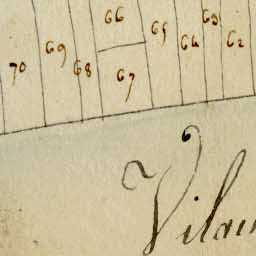 66
70 69 68 67 65 64 63 62